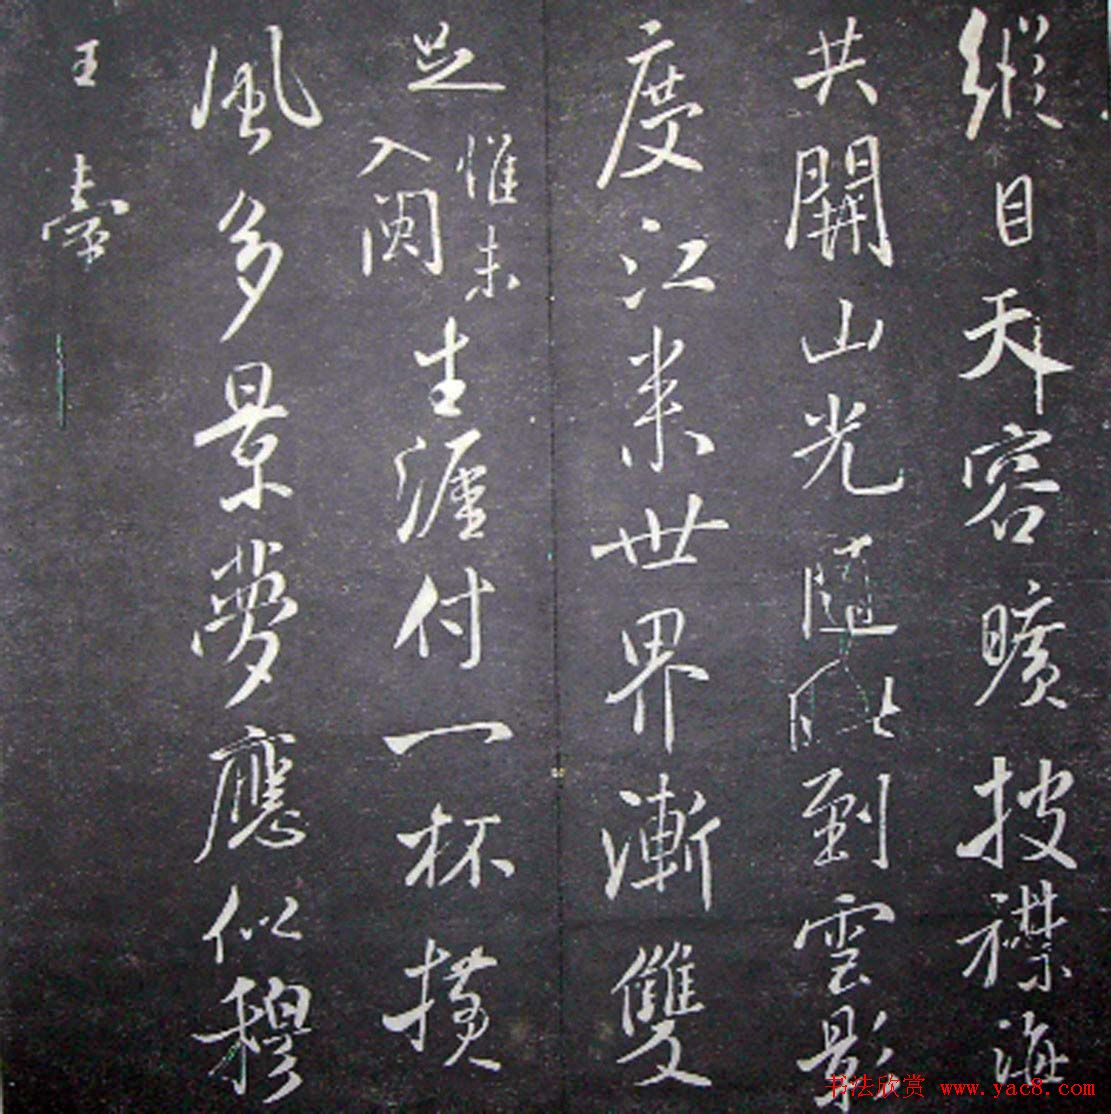 縱目天容曠披襟海
共開山光隨眼到雲影
度江來世界漸雙
足惟未入閩生涯付一杯橫
風多景夢應似穆
王臺
书法欣赏 www.yac8.com